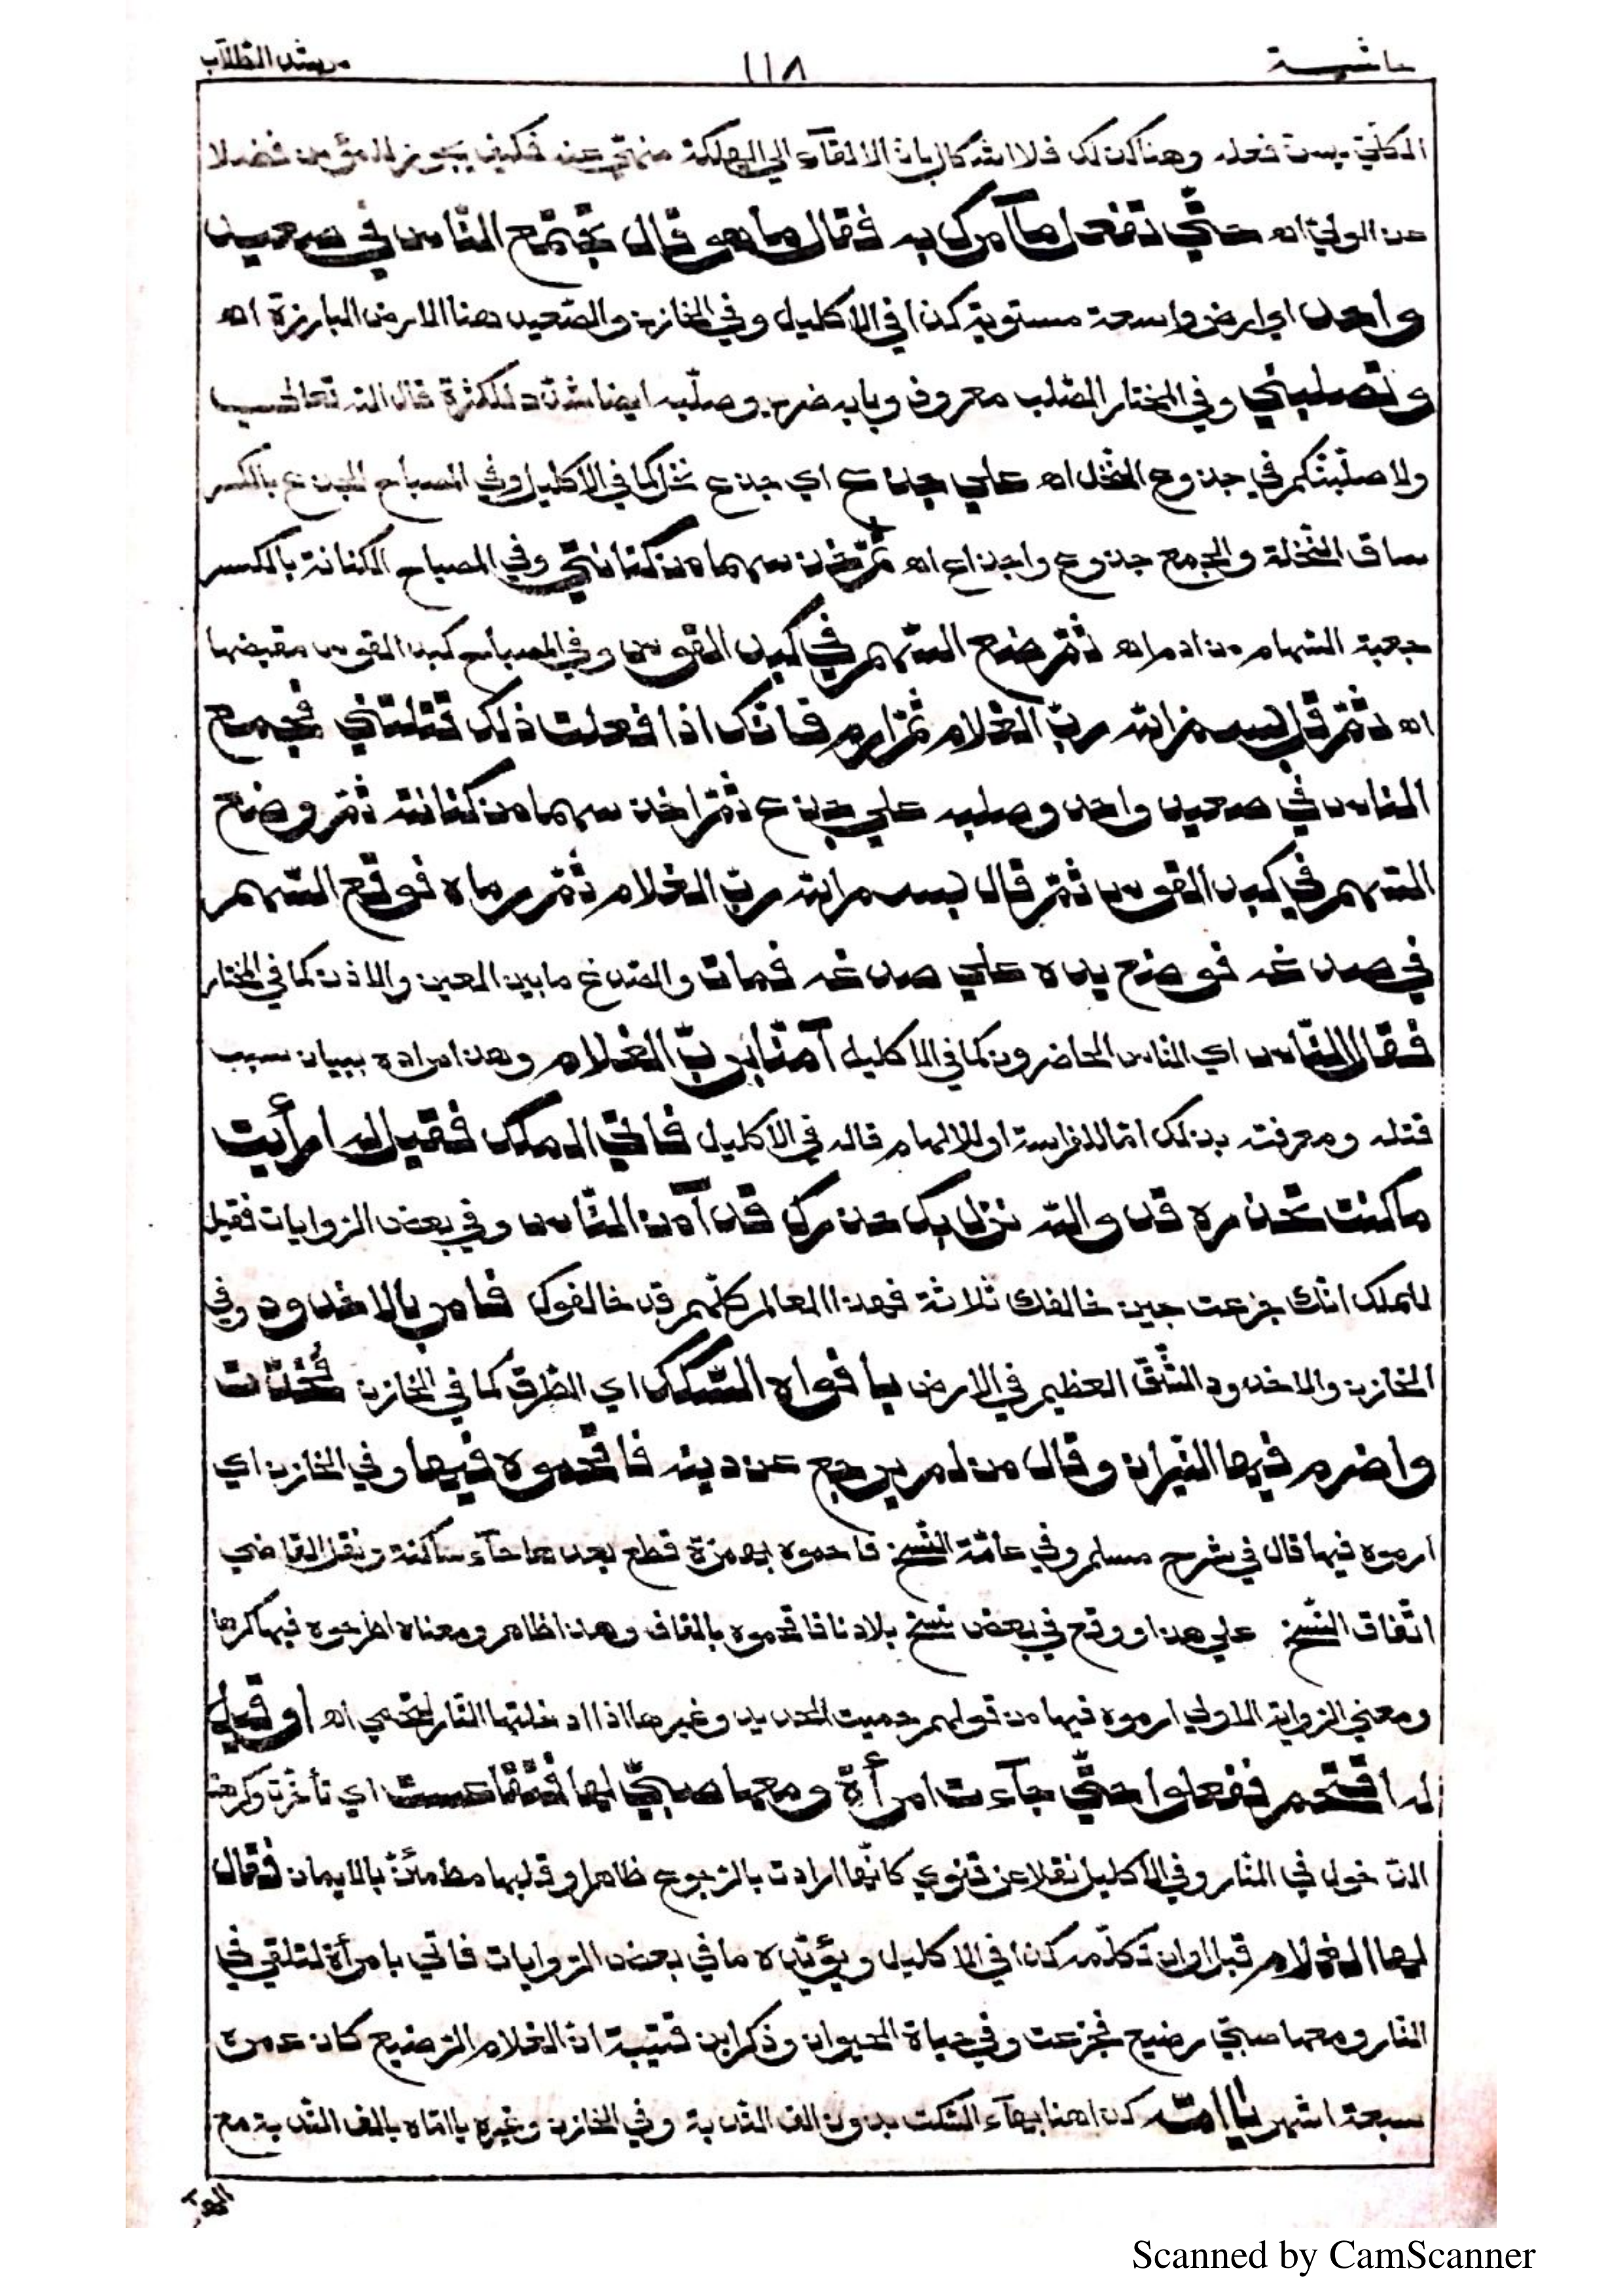 حاشية ١١٨ مرشد الطلاب
فعله وهنا كذلك فلا اشكال بان الالقآء الي الهلكة منهي عنه فكيف يجوز للمؤمن فضلا
عن الولي اه حتّي تفعل مآ آمرك به فقال وما هو قال تجتمع النّاس في صعيد
واحد اي ارض واسعة مستوية كذا في الاكليل وفي الخازن والصّعيد هنا الارض البارزة اه
وتصلبني وفي المختار الصّلب معروف وبابه ضرب وصلّبه ايضا شدّد للكثرة قال الله تعالي
ولاصلّبنّكم في جذوع النّخل اه علي جذع اي جذع نخل كما في الاكليل وفي المصباح الجذع بالكسر
ساق النّخلة والجمع جذوع واجذاع اه ثمّ تخذ سهما من كنانتي وفي المصباح الكنانة بالكسر
جعبة السّهام من ادم اه ثمّ ضع السّهم في كبد القوس وفي المصباح كبد القوس مقبضها
اه ثمّ قل بسم الله ربّ الغلام ثمّ ارم فانّك اذا فعلت ذلك قتلتني فجمع
النّاس في صعيد واحد وصلبه علي جذع ثمّ اخذ سهما من كنانته ثمّ وضع
السّهم في كبد القوس ثمّ قال بسم الله ربّ الغلام ثمّ رماه فوقع السّهم
في صدغه فوضع يده علي صدغه فمات والصّدغ ما بين العين والاذن كما في المختار
فقال النّاس اي النّاس الحاضرون كما في الاكليل آمنّا بربّ الغلام وهذا مراده ببيان سبب
قتله ومعرفته بذلك امّا للفراسة او للالهام قاله في الاكليل فاتي الملك فقيل له ارأيت
ما كنت تحذره قد والله نزل بك حذرك قد آمن النّاس وفي بعض الرّوايات فقيل
للملك انّك جزعت حين خالفك ثلاثة فهذا العالم كلّهم قد خالفوك فامر بالاخدود وفي
الخازن والاخدود الشّقّ العظيم في الارض بافواه السّكك اي الطّرق كما في الخازن فخدّت
واضرم فيها النّيران وقال من لم يرجع عن دينه فاقحموه فيها وفي الخازن اي
ارموه فيها قال في شرح مسلم وفي عامّة النّسخ فاحموه بهمزة قطع بعدها حآء ساكنة ونقل القاضي
اتّفاق النّسخ علي هذا ووقع في بعض نسخ بلادنا فاقحموه بالقاف وهذا ظاهر ومعناه اطرحوه فيها كرها
ومعني الرّواية الاولي ارموه فيها من قولهم حميت الحديد وغيرها اذا ادخلتها النّار لتحمي اه او قيل
له اقتحم ففعلوا حتّي جآءت امرأة ومعها صبيّ لها فتقاعست اي تأخّرت وكرهت
الدّخول في النّار وفي الاكليل نقلا عن قنوي كانّها ارادت بالرّجوع ظاهرا وقلبها مطمئنّ بالايمان فقال
لها الغلام قبل اوان تكلّمه كذا في الاكليل ويؤيّده ما في بعض الرّوايات فاتي بامرأة لتلقي في
النّار ومعها صبيّ رضيع فجزعت وفي حياة الحيوان وذكر ابن قتيبة انّ الغلام الرّضيع كان عمره
سبعة اشهر يا امّه كذا هنا بهآء السّكت بدون الف النّدبة وفي الخازن وغيره يا امّاه بالف النّدبة مع
Scanned by CamScanner